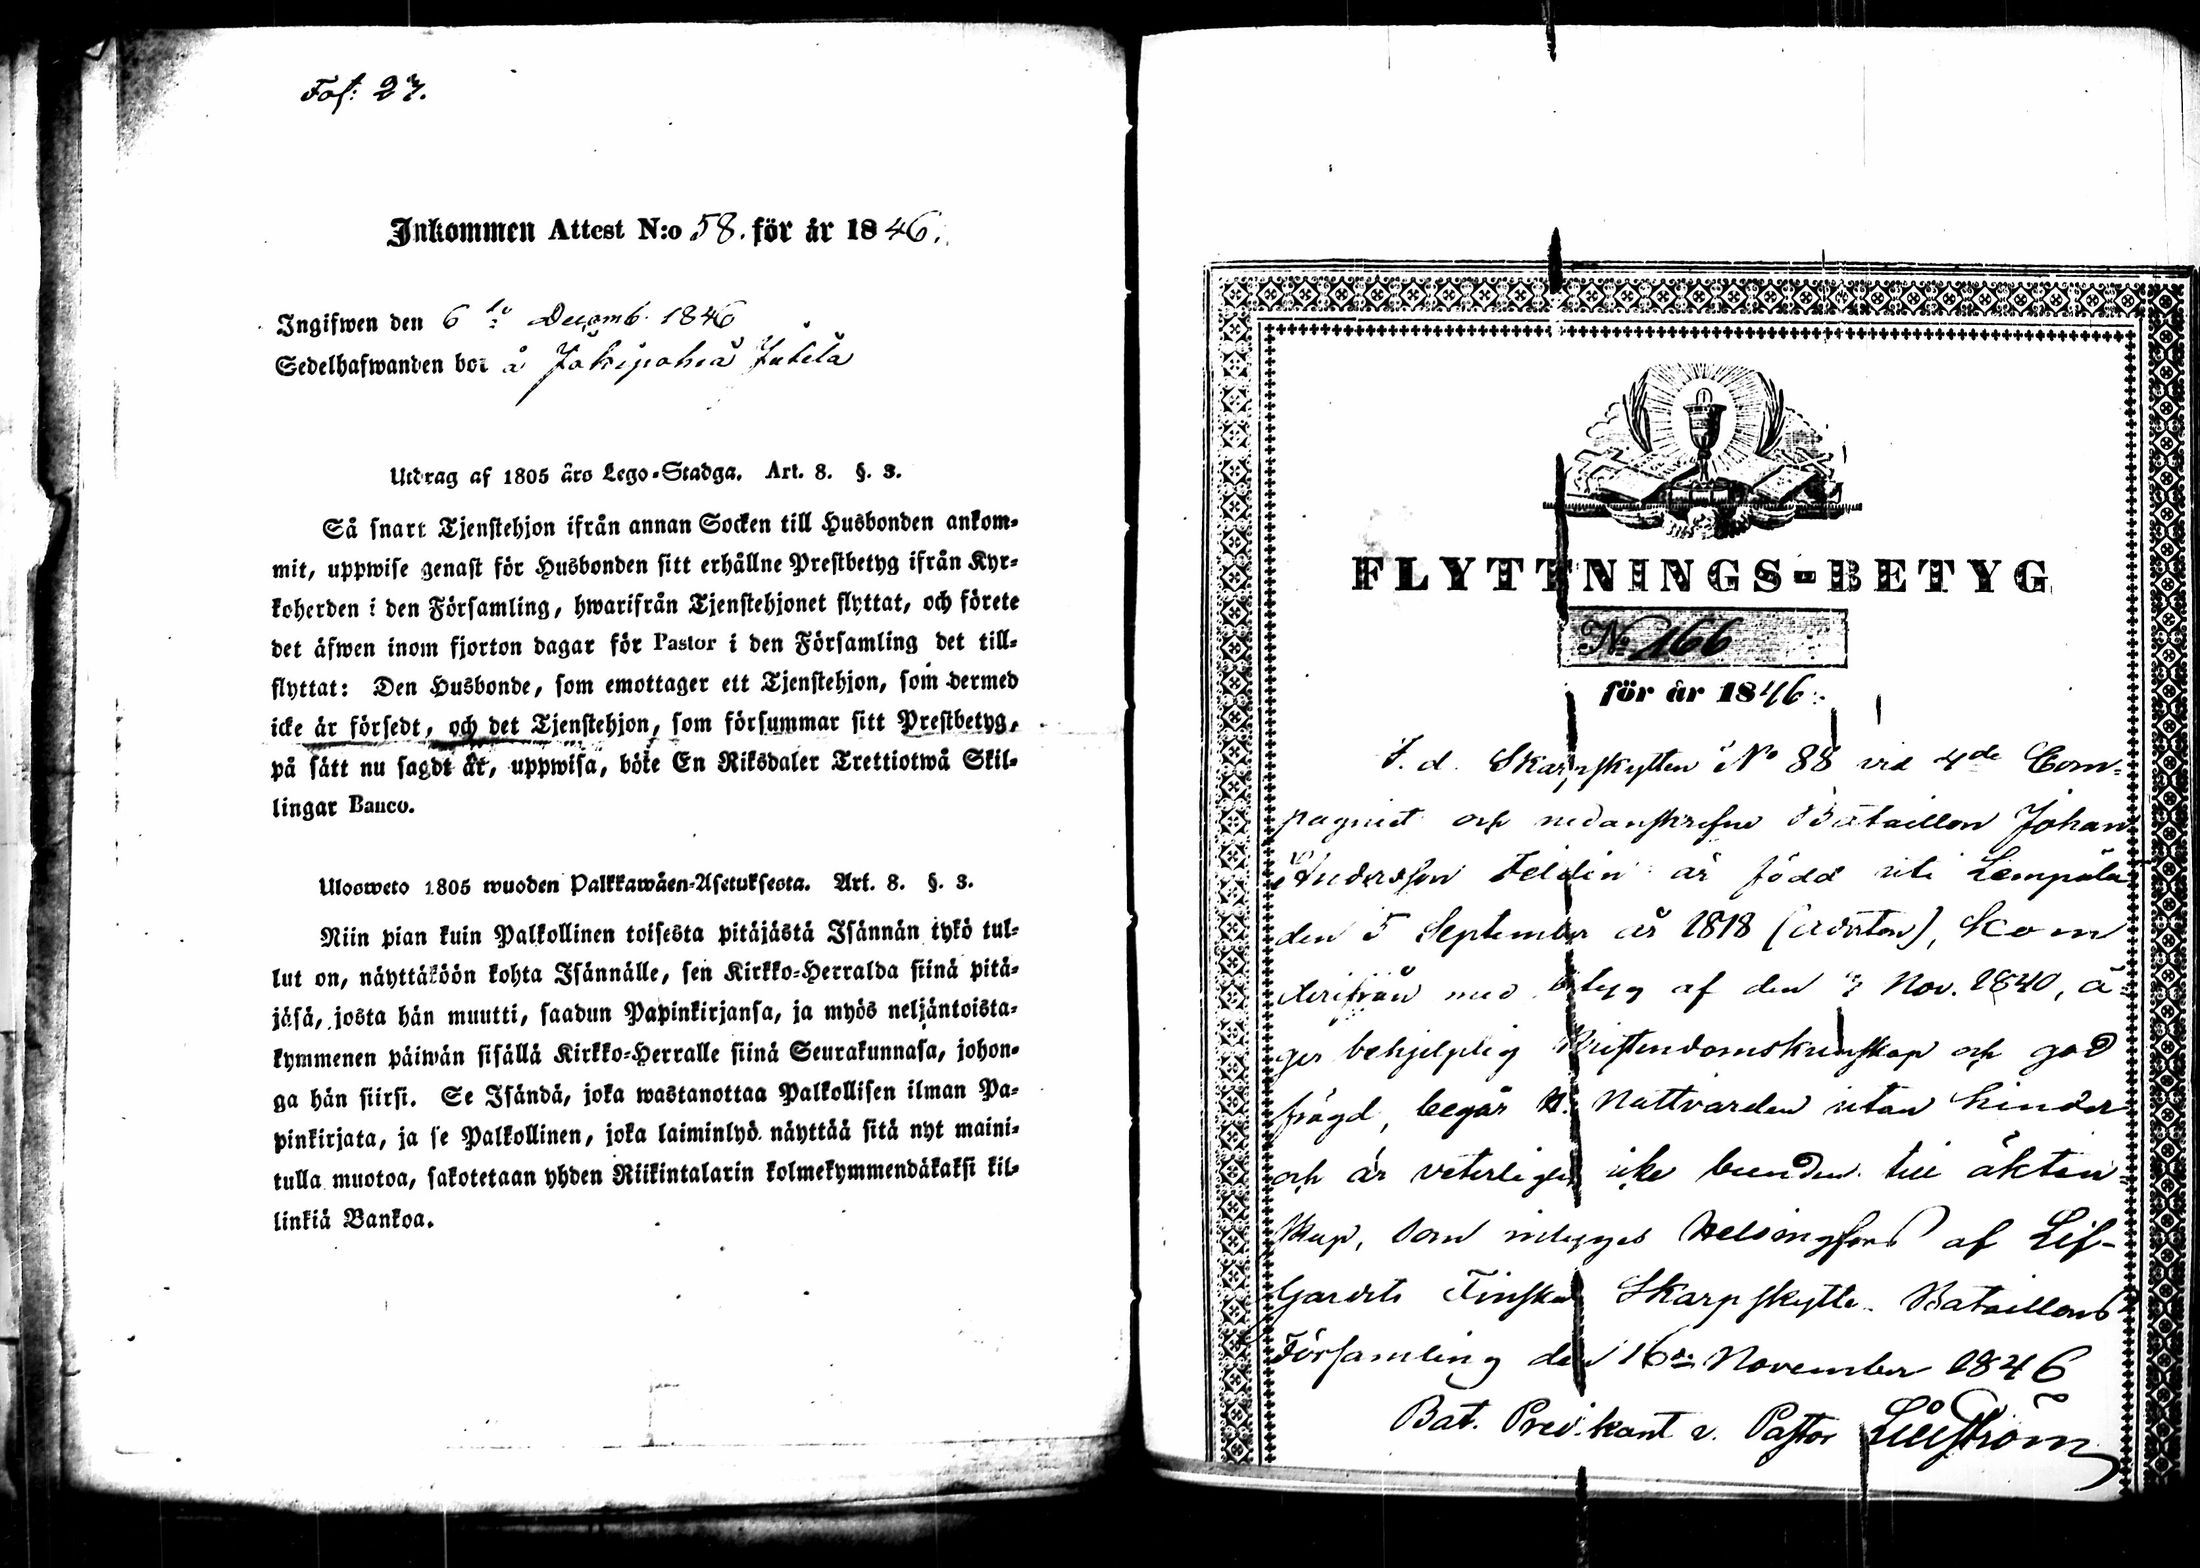 Fol: 27.
Inkommen Attest N:o 58. för år 1846.
Ingifwen den 6 te Decemb. 1846
Sedelhafwanden bor å Jokipohia Jutila
Utdrag af 1805 års Lego-Stadga. Art. 8. §. 3.
Så snart Tjenstehjon ifrån annan Socken till Husbonden ankom-
mit, uppwise genast för Husbonden sitt erhållne Prestbetyg ifrån Kyr-
koherden i den Församling, hwarifrån Tjenstehjonet flyttat, och förete
det äfwen inom fjorton dagar för Pastor i den Församling det till-
flyttat: Den Husbonde, som emottager ett Tjenstehjon, som dermed
icke är försedt, och det Tjenstehjon, som försummar sitt Prestbetyg,
på sätt nu sagdt är, uppwisa, böte En Riksdaler Trettiotwå Skil-
lingar Banco.
Ulosweto 1805 wuoden Palkkawäen-Asetuksesta. Art. 8. §. 3.
Niin pian kuin Palkollinen toisesta pitäjästä Isännän tykö tul-
lut on, näyttäköön kohta Isännälle, sen Kirkko-Herralda siinä pitä-
jäsä, josta hän muutti, saadun Papinkirjansa, ja myös neljäntoista-
kymmenen päiwän sisällä Kirkko-Herralle siinä Seurakunnasa, johon-
ga hän siirsi. Se Isändä, joka wastanottaa Palkollisen ilman Pa-
pinkirjata, ja se Palkollinen, joka laiminlyö näyttää sitä nyt maini-
tulla muotoa, sakotetaan yhden Riikintalarin kolmekymmendäkaksi kil-
linkiä Bankoa.
FLYTTNINGS-BETYG
No 166
för år 1846.
F. d. Skarpskytten No 88 vid 4de Com-
pagniet och nedanskrefne Bataillon Johan
Andersson Feldin är född uti Lempäla
den 5 September år 1818 (Aderton), kom
derifrån med betyg af den Nov. 1840, ä-
ger behjelplig Kristendomskunskap och god
frägd, begår H. Nattvarden utan hinder
och är veterligen icke bunden till äkten-
skap, som intygas Helsingfors af Lif-
Gardets Finska Skarpskytte-Bataillons
Församling den 16de November 1846
Bat. Predikant v. Pastor Lilljström